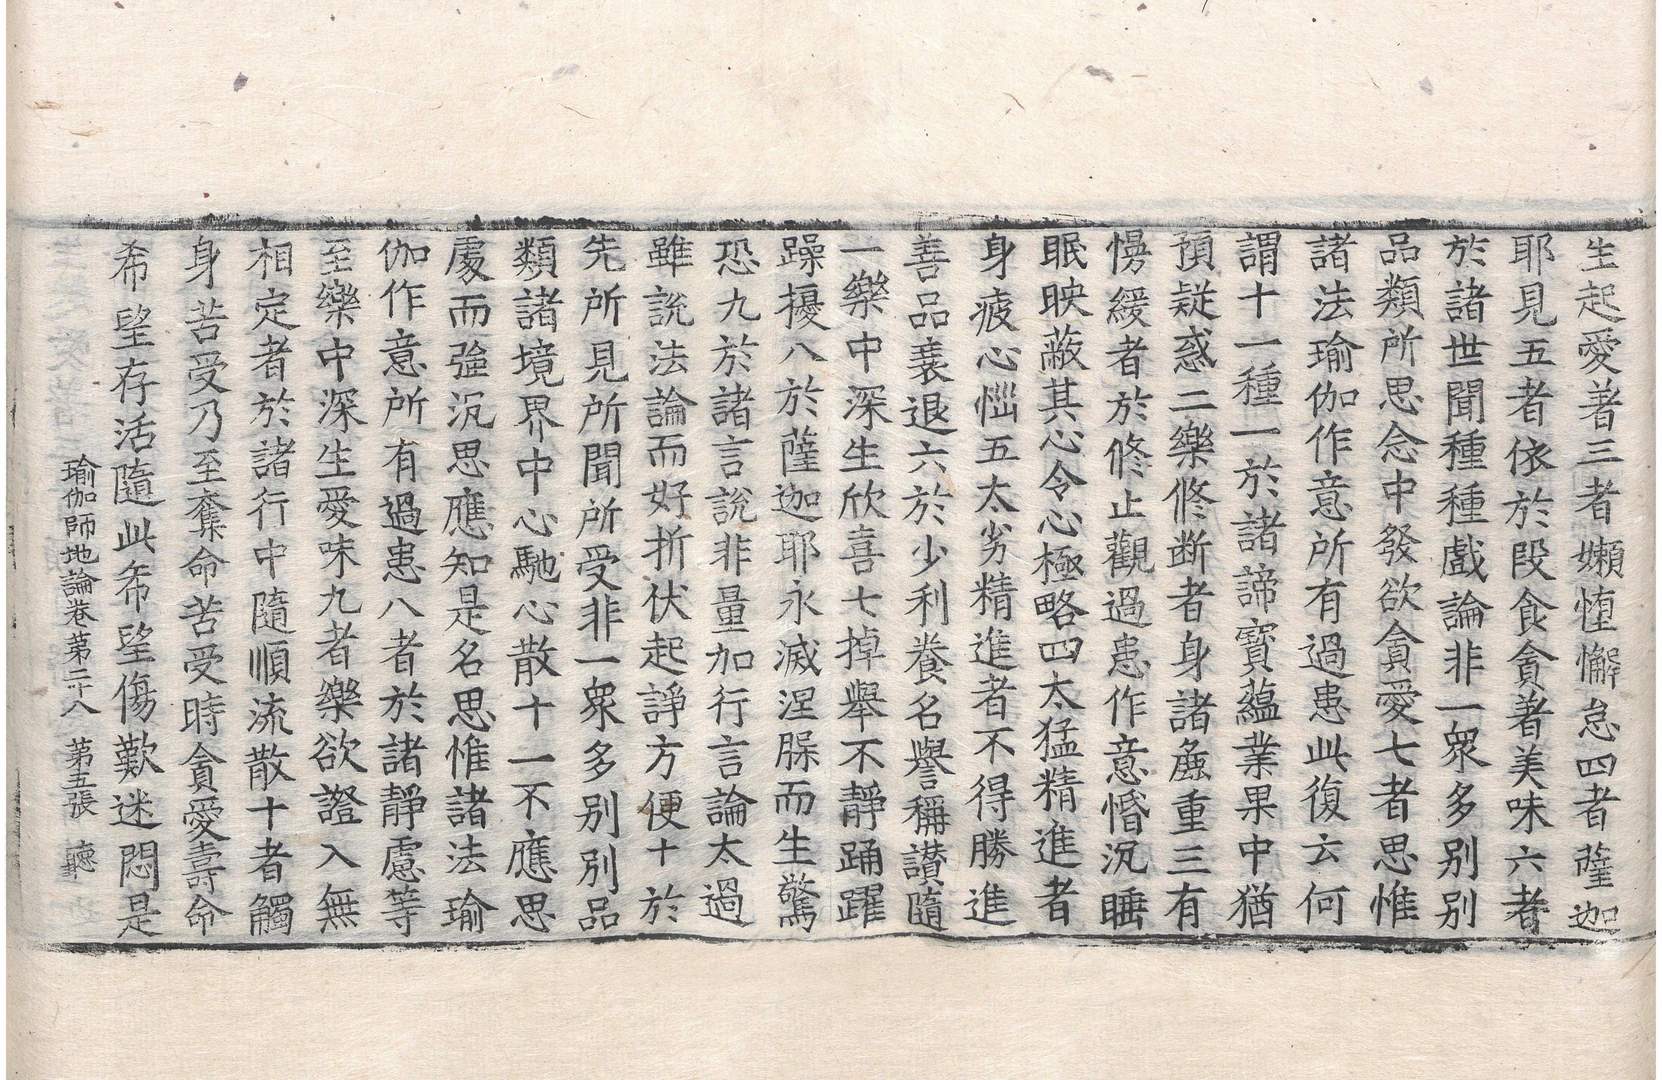 生起愛著三者嬾惰懈怠四者薩迦
耶見五者依於段食貪著美味六者
於諸世間種種戲論非一衆多別別
品類所思念中發欲貪愛七者思惟
諸法瑜伽作意所有過患此復云何
謂十一種一於諸諦寶蘊業果中猶
預疑惑二樂修断者身諸麁重三有
慢緩者於修止觀過患作意惛沉睡
眠映蔽其心令心極略四太猛精進者
身疲心惱五太劣精進者不得勝進
善品衰退六於少利養名譽稱讃隨
一樂中深生欣喜七掉舉不靜踊躍
躁擾八於薩迦耶永滅涅槃而生驚
恐九於諸言說非量加行言論太過
雖說法論而好折伏起諍方便十於
先所見所聞所受非一衆多別別品
類諸境界中心馳心散十一不應思
處而強沉思應知是名思惟諸法瑜
伽作意所有過患八者於諸靜慮等
至樂中深生愛味九者樂欲證入無
相定者於諸行中隨順流散十者觸
身苦受乃至奪命苦受時貪愛壽命
希望存活隨此希望傷歎迷悶是
瑜伽師地論卷第二十八 第五張 聽